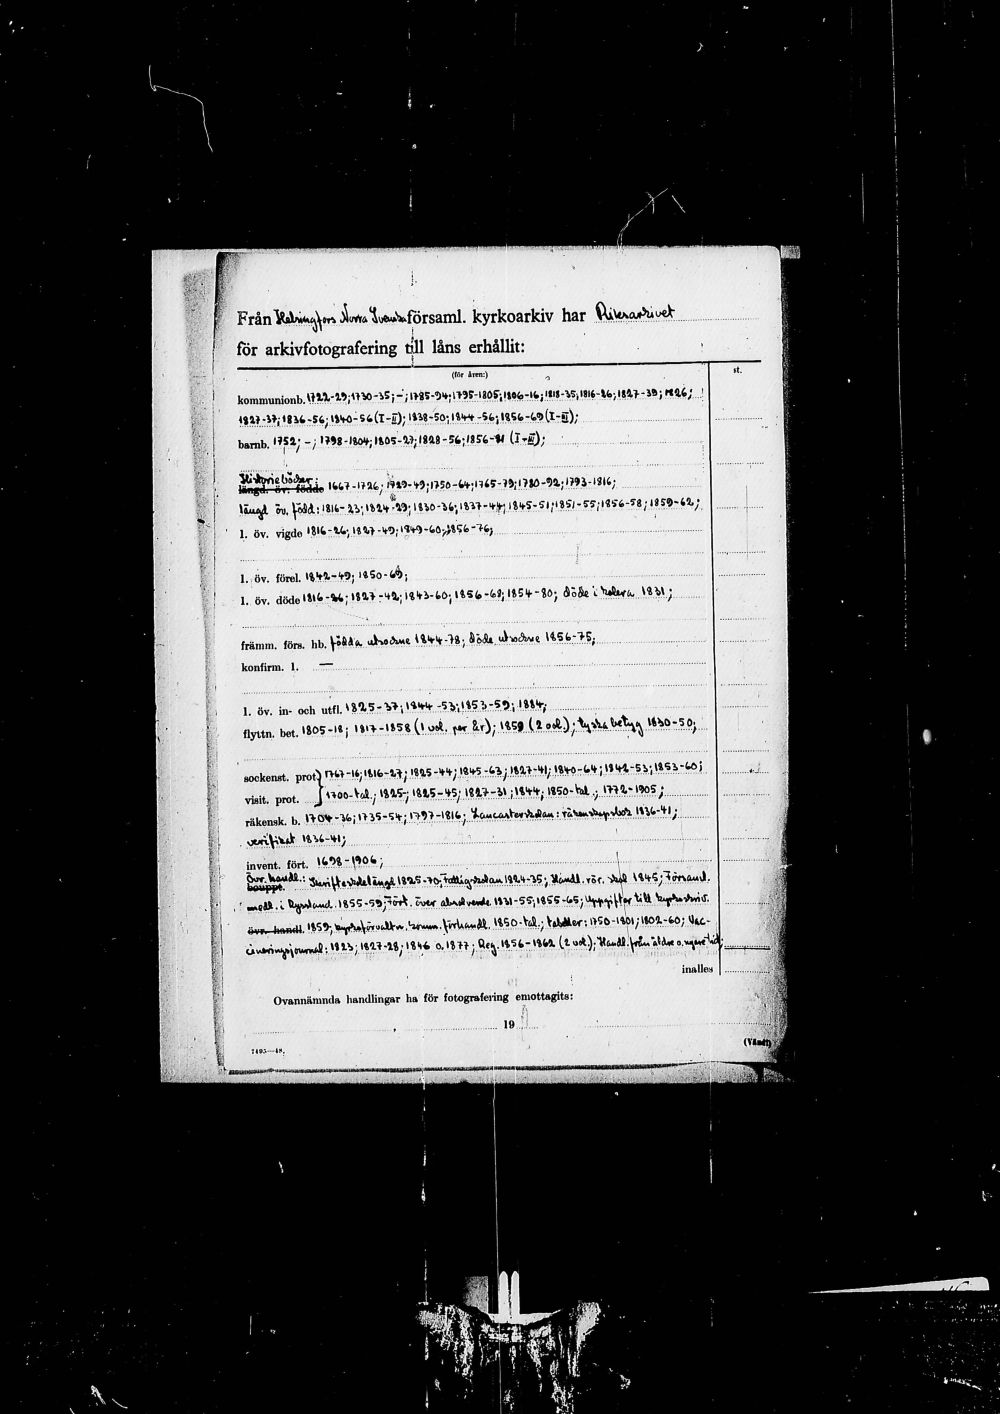 Från Helsingfors Norra Svenska församl. kyrkoarkiv har Riksarkivet
för arkivfotografering till låns erhållit:
(för åren:)
st.
kommunionb. 1722-29; 1730-35; -; 1785-94; 1795-1805; 1806-16; 1818-35; 1816-26; 1827-39; 1826;
1827-37; 1836-56; 1840-56 (I-II); 1838-50; 1844-56; 1856-69 (I-III);
barnb. 1752; -; 1798-1804; 1805-27; 1828-56; 1856-81 (I-III);
Historieböcker:
längd. öv. födde 1667-1726; 1729-49; 1750-64; 1765-79; 1780-92; 1793-1816;
längd öv. född: 1816-23; 1824-29; 1830-36; 1837-44; 1845-51; 1851-55; 1856-58; 1859-62;
l. öv. vigde 1816-26; 1827-49; 1849-60; 1856-76;
l. öv. förel. 1842-49; 1850-69;
l. öv. döde 1816-26; 1827-42; 1843-60; 1856-68; 1854-80; döde i kolera 1831;
främm. förs. hb. födda utsockne 1844-78; döde utsockne 1856-75;
konfirm. l. —
l. öv. in- och utfl. 1825-37; 1844-53; 1853-59; 1884;
flyttn. bet. 1805-18; 1817-1858 (1 vol. per år); 1859 (2 vol.); tyska betyg 1830-50;
sockenst. prot. 1767-16; 1816-27; 1825-44; 1845-63; 1827-41; 1840-64; 1842-53; 1853-60;
visit. prot. 1700-tal; 1825-; 1825-45; 1827-31; 1844; 1850-tal; 1772-1905;
räkensk. b. 1704-36; 1735-54; 1797-1816; Lancasterskolan: räkenskapsbok 1836-41;
verifikat 1836-41;
invent. fört. 1698-1906;
Övr. handl.: Skrifteskolelängd 1825-70; Fattigskolan 1824-35; Handl. rör. skol 1845; Församl.
bouppt.
medl. i Ryssland 1855-59; Fört. över absolverde 1831-55; 1855-65; Uppgifter till kyrkoskriv.
övr. handl. 1859; kyrkoförvaltn. komm. förhandl. 1850-tal; tabeller: 1750-1801; 1802-60; Vac-
cineringsjournal: 1823; 1827-28; 1846 o. 1877; Reg. 1856-1862 (2 vol.); Handl. från äldre o. nyare tid;
inalles
Ovannämnda handlingar ha för fotografering emottagits:
19
7495—48.
(Vänd!)